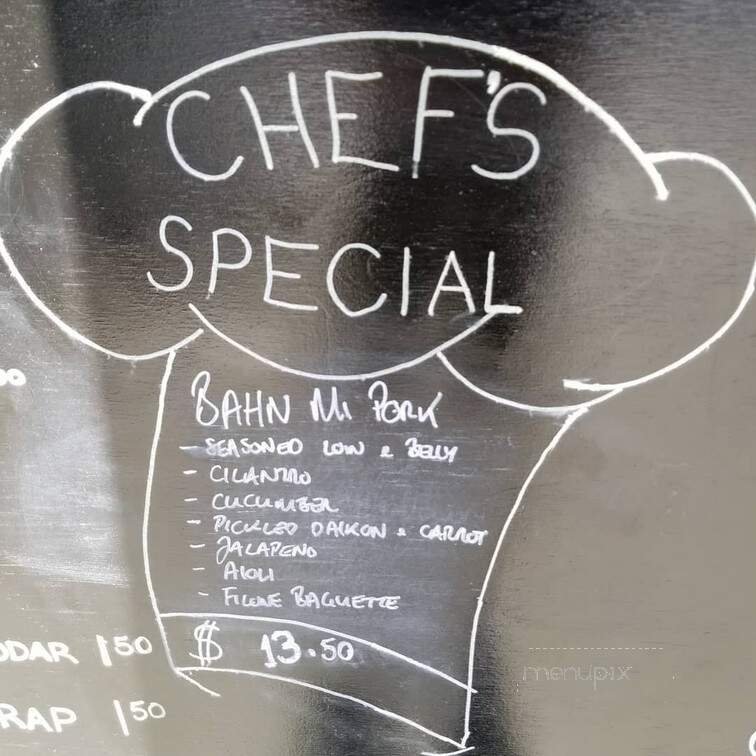 CHEF'S
SPECIAL
BAHN MI PORK
- SEASONED LOIN & BELLY
- CILANTRO
- CUCUMBER
- PICKLED DAIKON & CARROT
- JALAPENO
- AIOLI
- FICONE BAGUETTE
$ 13.50
DDAR 150
RAP 150
menupix